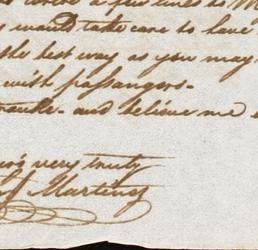 a few lines to M
would take care to have
the best way as you may
with passangers-
and believe me
very truly
Martinez